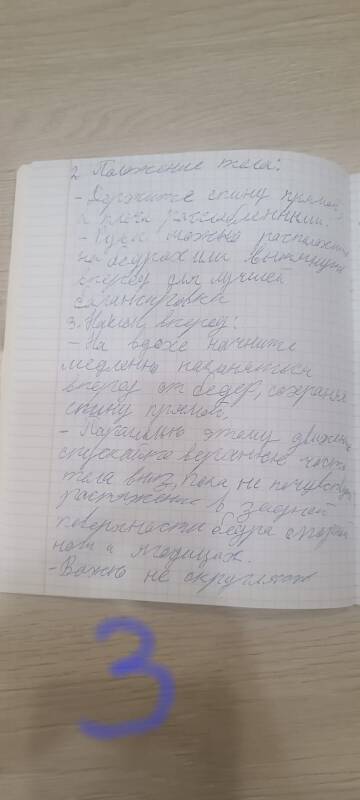 2. Положение тела:
- Держите спину прямой,
а плечи расслабленными.
- Руки можно расположить
на бедрах или вытянуть
вперед для лучшей
балансировки
3. Наклон вперед:
- На вдохе начните
медленно наклоняться
вперед от бедер, сохраняя
спину прямой.
- этому движению
опускайте верхнюю часть
тела вниз, пока не почувствуете
растяжение в задней
поверхности бедра
ноги и ягодицах.
- Важно не округлять
3